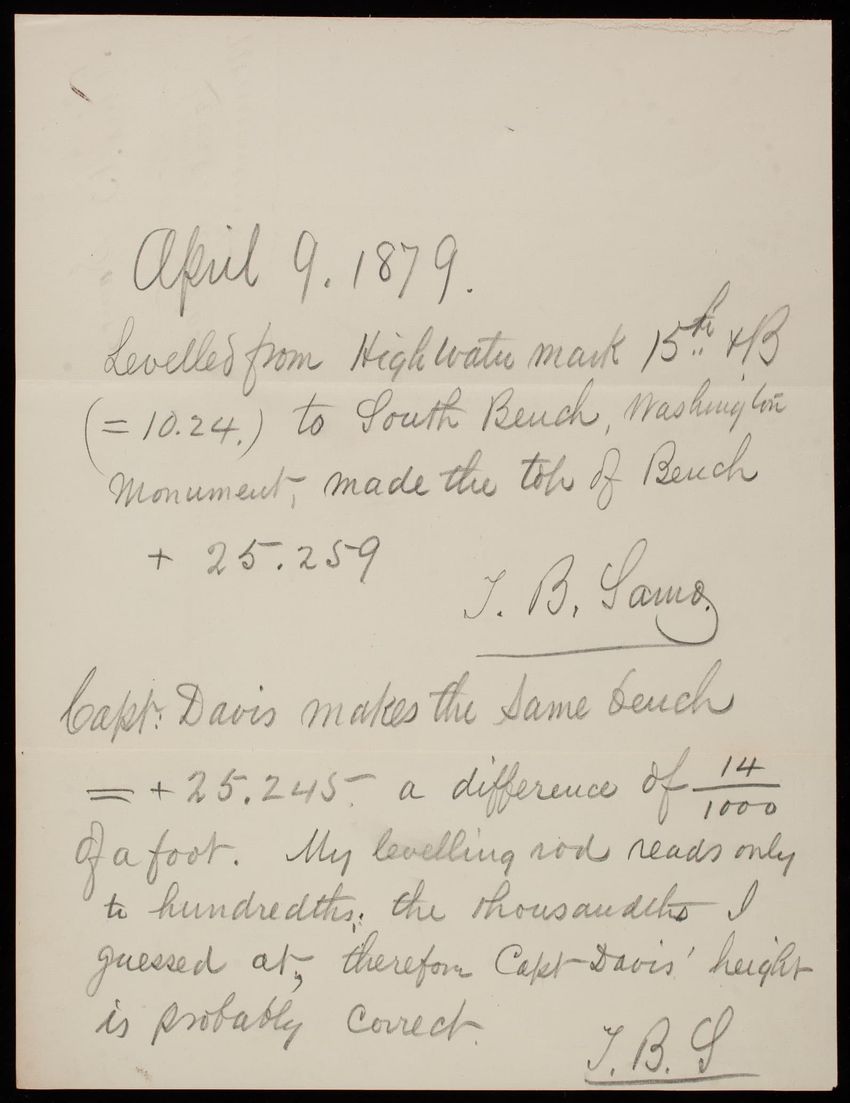 April 9. 1879.
Levelled from High water mark 15th & B
(= 10.24.) to South Bench, Washington
Monument, made the top of Bench
+ 25.259
T. B. Samo.
Capt. Davis makes the same bench
= + 25.245. a difference of 14/1000
of a foot. My levelling rod reads only
to hundredths; the thousandths I
guessed at, therefore Capt Davis' height
is probably correct.
T. B. S